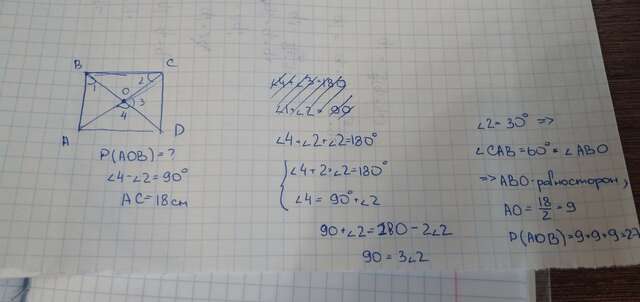 B
C
1
2
O
3
4
A
D
P(AOB) = ?
∠4 - ∠2 = 90°
AC = 18 см
∠4 + ∠3 = 180
∠1 + ∠2 = 90
∠4 + ∠2 + ∠2 = 180°
∠4 + 2·∠2 = 180°
∠4 = 90° + ∠2
90 + ∠2 = 180 - 2∠2
90 = 3∠2
∠2 = 30° =>
∠CAB = 60° = ∠ABO
=> ABO - равносторон,
AO = 18/2 = 9
P(AOB) = 9 + 9 + 9 = 27